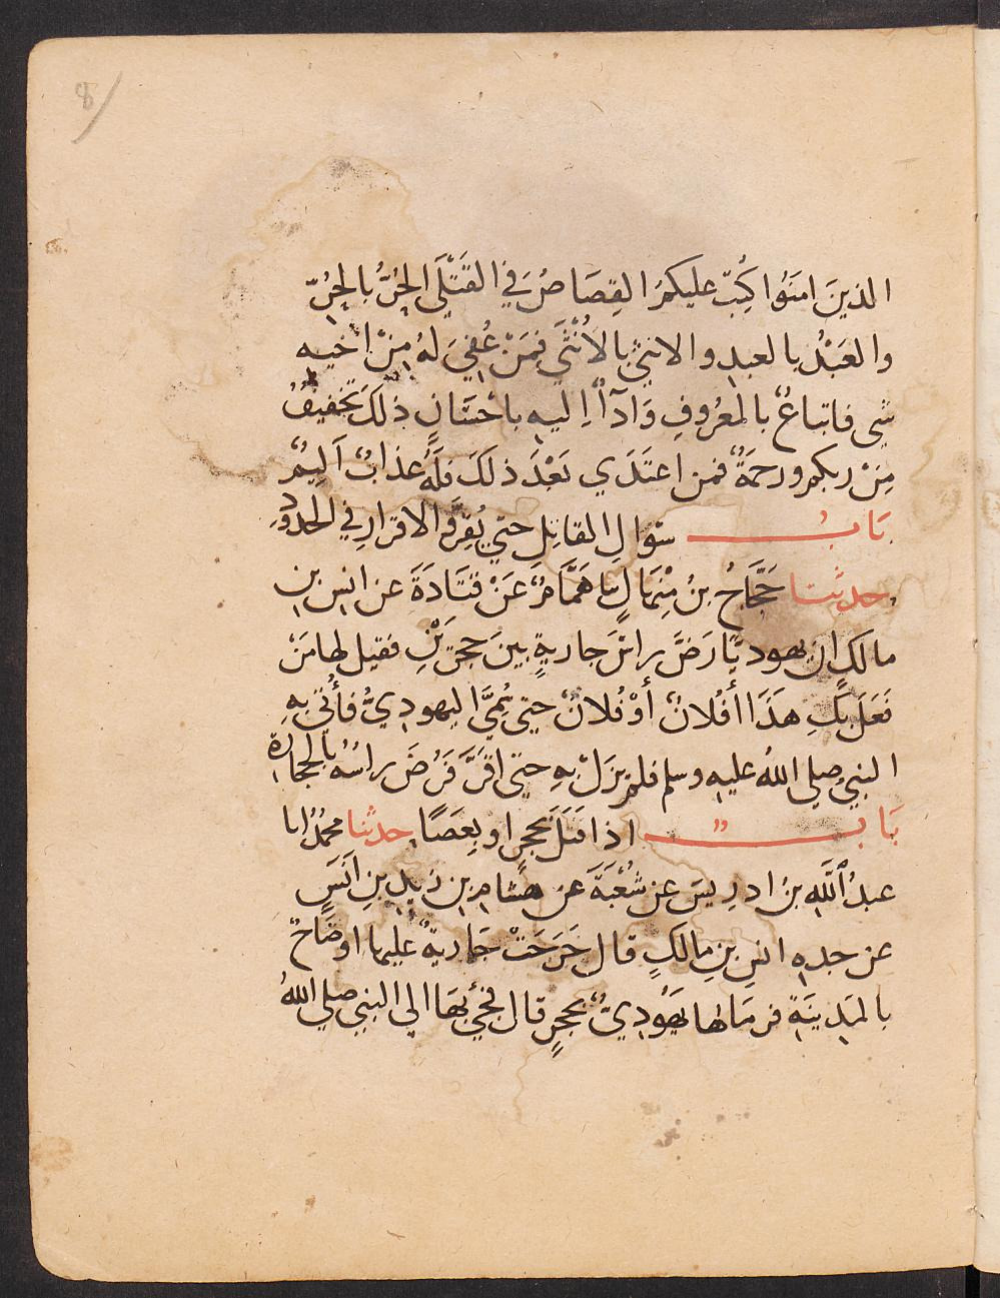 8
الذينَ امَنُوا كُتِبَ عليكمُ القِصَاصُ فِي القَتْلَي الحُرُّ بالحُرِّ
والعَبْدُ بالعبدِ والانثيُ بالأُنْثَي فمَنْ عُفِيَ لهُ مِنْ اخيه
شي فاتباعٌ بالمعْرُوفِ وَادَآٌ اِليهِ باحْسَانٍ ذلكَ تخفيفٌ
مِنْ ربكم ورحمَةٌ فمن اعتَدَي بَعْدَ ذلكَ فلَهُ عذابٌ اَلِيمٌ
بَابُ سوالِ القاتِلِ حتي يُقِرَّ والاقرارِ في الحدودِ
حدثنا حَجَّاجُ بنُ مِنْهَالٍ نا هَمَّامٌ عَنْ قتَادَةَ عن انس بنِ
مالكٍ ان يهوديًّا رَضَّ راسَ جاريةٍ بينَ حجرَيْنِ فقيل لها مَنْ
فَعَلَ بكِ هَذَا أفُلانٌ أوْ فُلانٌ حتي سُمِّيَ اليهوديُّ فأُتِيَ بهِ
النبيُ صلي اللهُ عليهِ وسلم فلمْ يزَلْ بهِ حتي اقرَّ فَرُضَ راسُهُ بالحجارة
بَابٌ اذا قتَلَ بحجرٍ او بِعَصًا حدثنا محمدٌ انا
عبدُ اللَّهِ بنُ ادريسَ عن شُعْبَةَ عن هشامِ بنِ زيدِ بنِ اَنَسٍ
عن جدهِ انسِ بنِ مالكٍ قال خَرَجَتْ جَاريةٌ عليها اوضَاحٌ
بالمَدينَةِ فرمَاها يَهُوديٌّ بحجرٍ قال فجئَ بهَا الي النبي صلي اللهُ